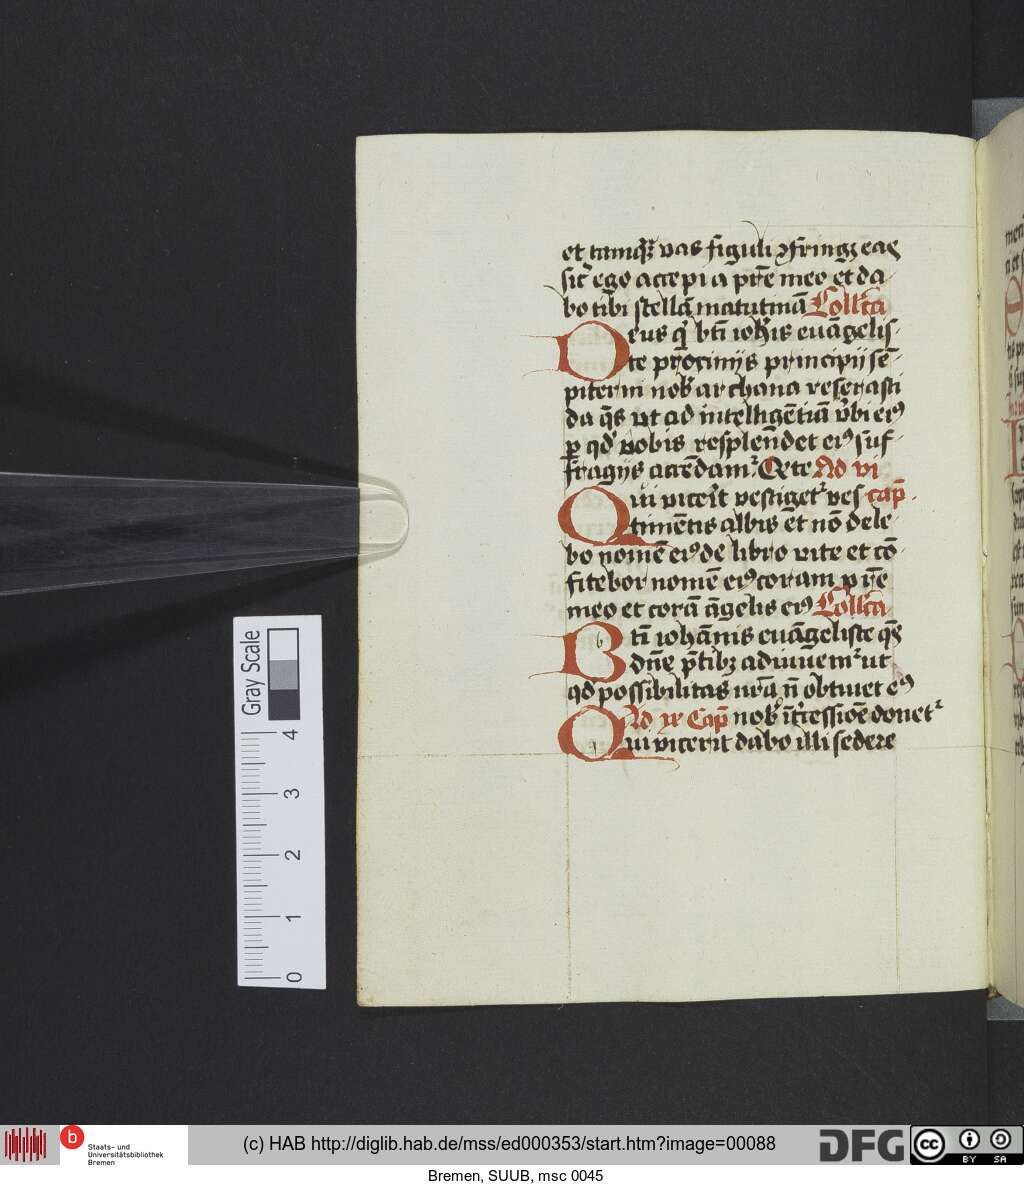 et tamqȝ vas figuli ꝯfringꝫ eas
sic̄ ego accepi a pr̄e meo et da
bo tibi stellā matutinā Collcā
Deus qͥ bt̄i ioh̄is euāgelis-
te precinijs principij sē-
piterni nob̄ archana reserasti
da qs̄ vt ad intelligētiā v̄bi eiꝰ
ꝑ qd̄ nobis resplendet eiꝰ suf-
fragijs accedamᷣ Qete Ad vi
Qui vicerit vestigetᷣ ves cap̄.
timētis albis et nō dele
bo nomē eiꝰ de libro vite et cō-
fitebor nomē eiꝰ coram pr̄e
meo et corā āgelis eiꝰ Collcā
Bt̄i iohānis euāgeliste qs̄
dn̄e p̄cibꝫ adiuuemᷣ ut
qd possibilitas nr̄a n̄ obtinet eiꝰ
Ad ix Cap̄ nob̄ īt̄cessiōe donetᷣ
Qui vicerit dabo illi sedere
Gray Scale
4
3
2
1
0
b Staats- und
Universitätsbibliothek
Bremen
(c) HAB http://diglib.hab.de/mss/ed000353/start.htm?image=00088
DFG
cc BY SA
Bremen, SUUB, msc 0045